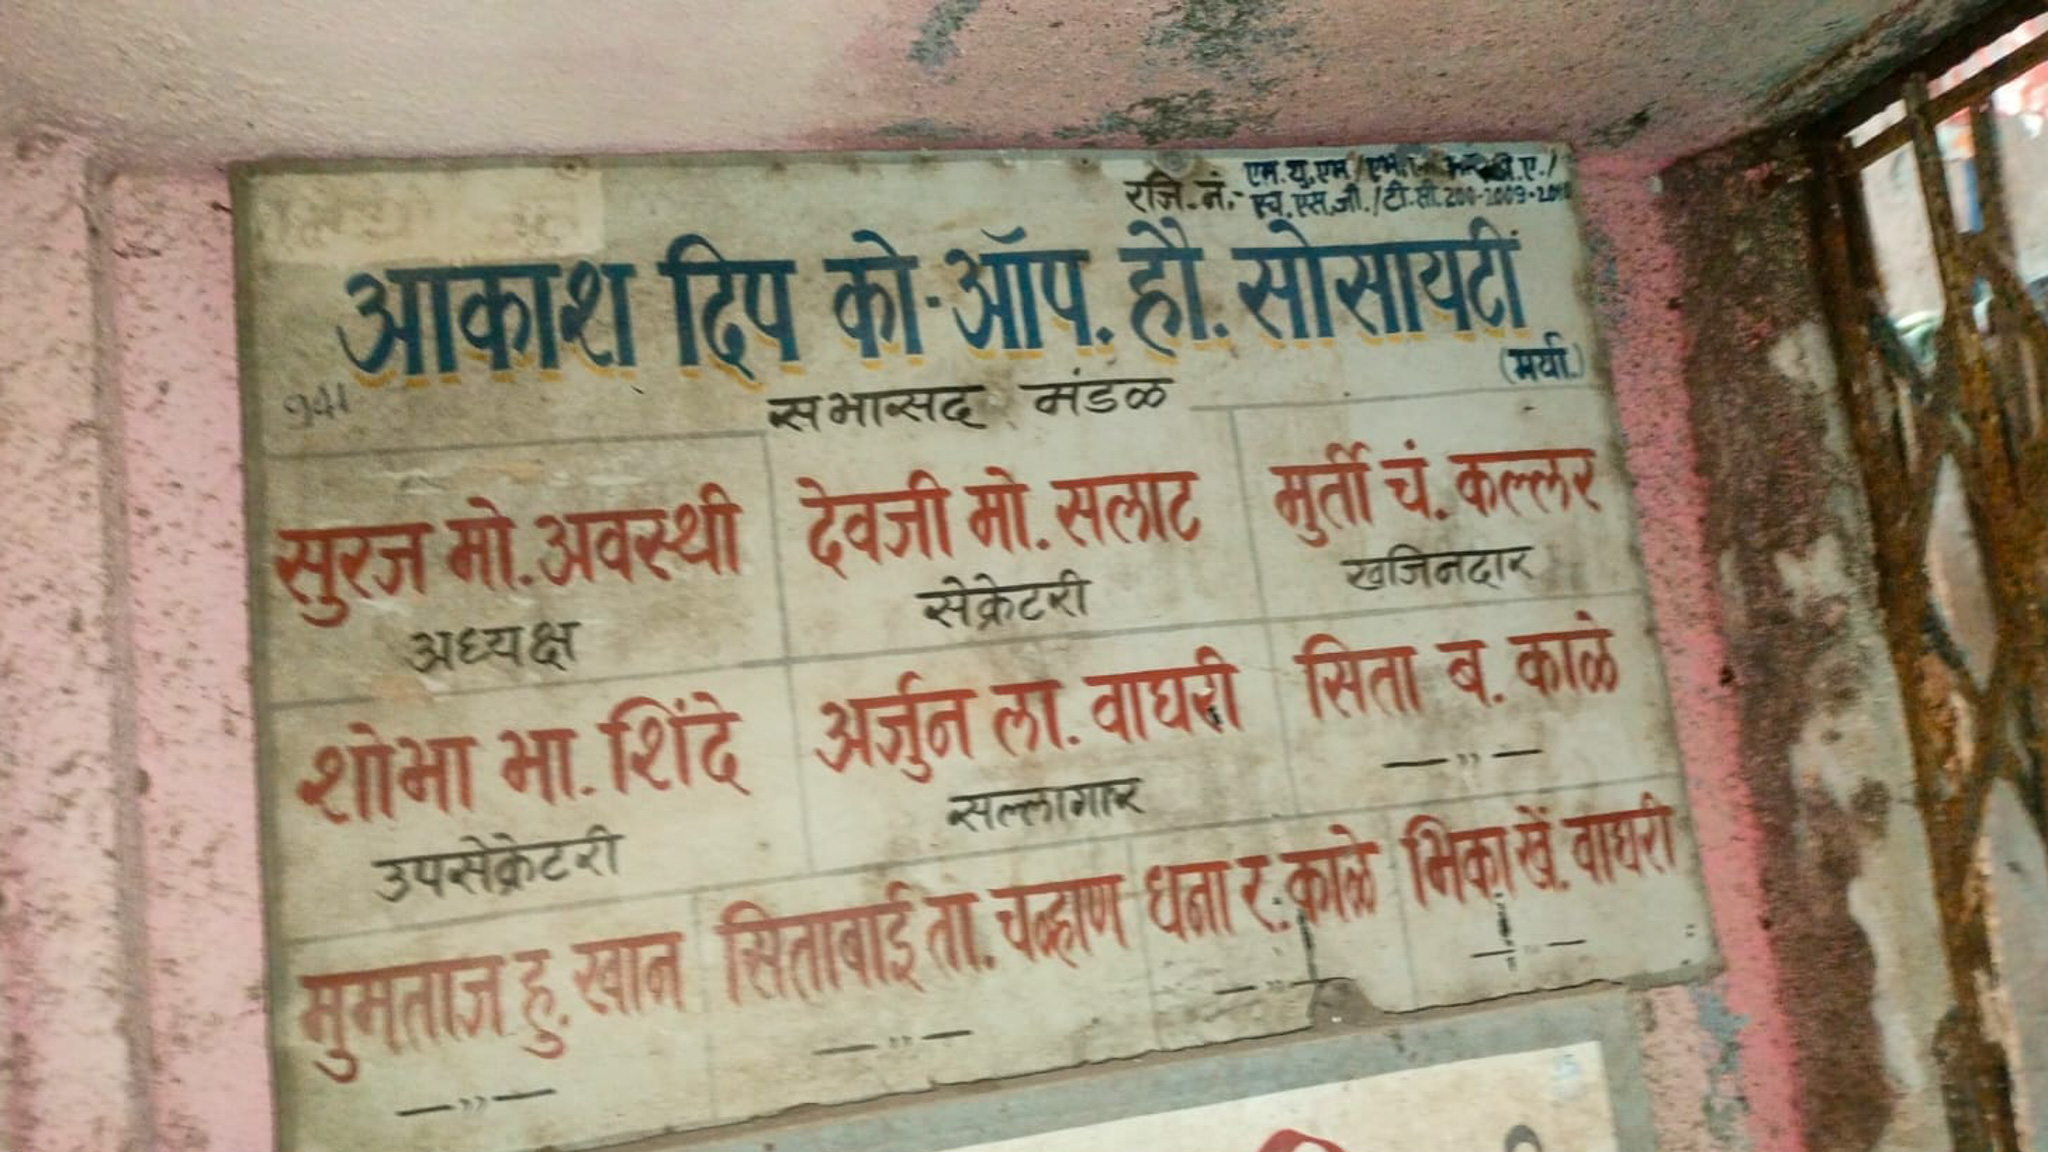 रजि.नं.-
एच.एस.जी./टी.सी.200-2009-2010
आकाश दिप को-ऑप. हौ. सोसायटीं
(मर्या.)
941
सभासद मंडळ
सुरज मो. अवस्थी
अध्यक्ष
देवजी मो. सलाट
सेक्रेटरी
मुर्ती चं. कल्लर
खजिनदार
शोभा भा. शिंदे
उपसेक्रेटरी
अर्जुन ला. वाघरी
सल्लागार
सिता ब. काळे
—,,—
मुमताज हु. खान
—,,—
सिताबाई ता. चव्हाण
—,,—
धना र. काळे
—,,—
भिका खें. वाघरी
—,,—